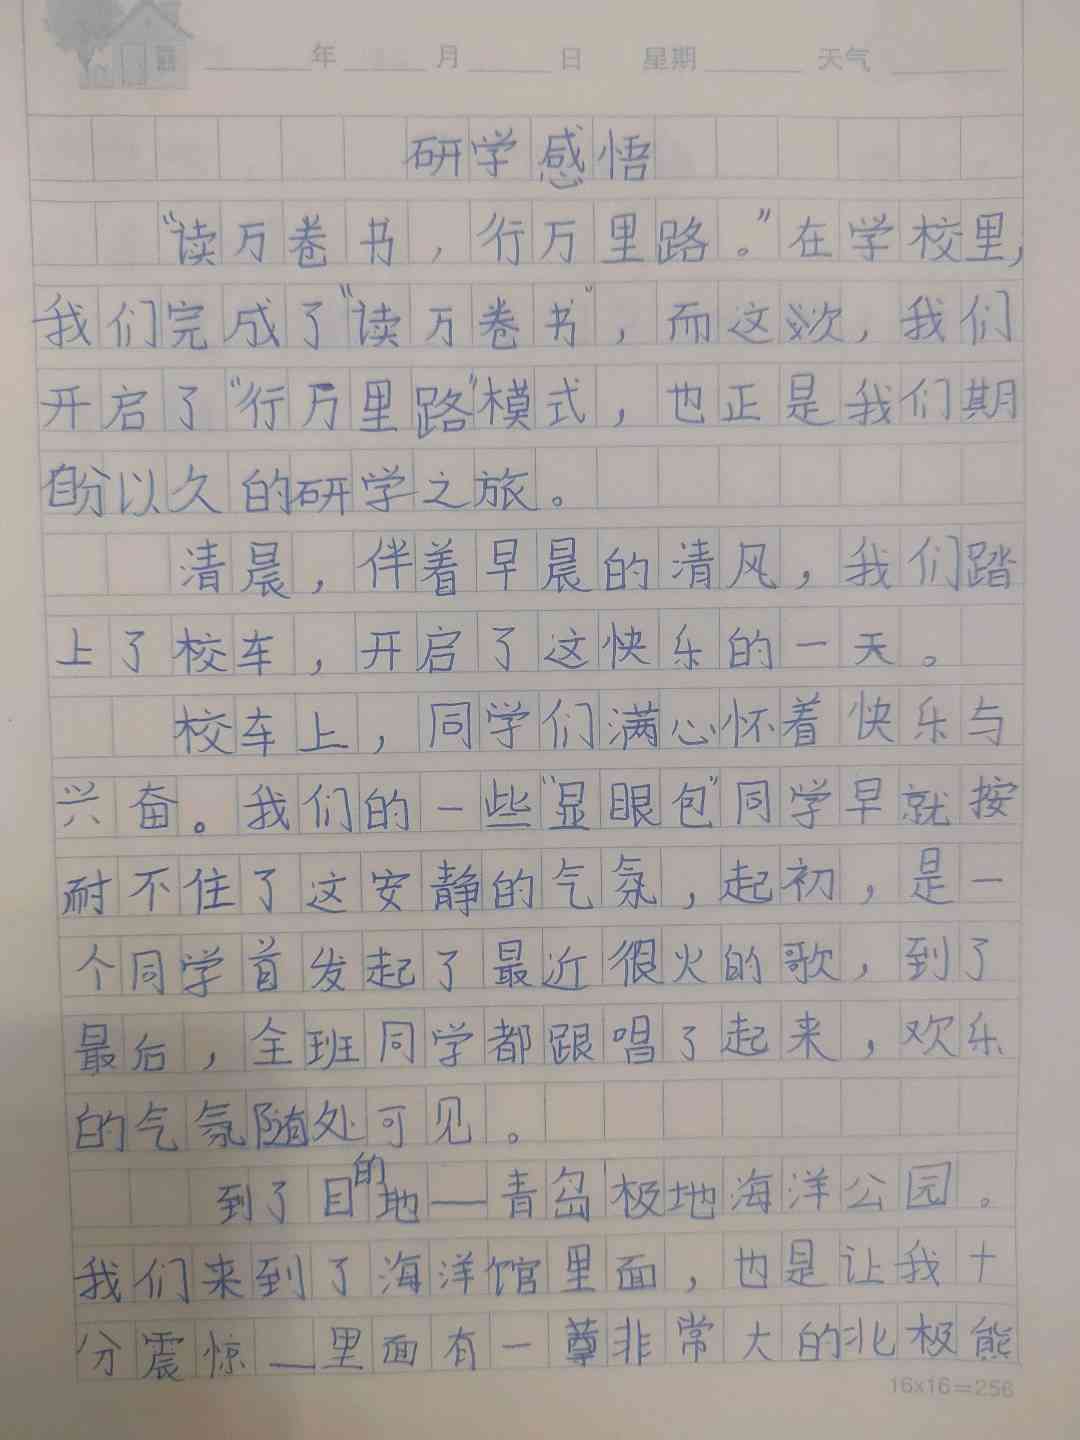 年 月 日 星期 天气
研学感悟
“读万卷书，行万里路。”在学校里，
我们完成了“读万卷书”，而这次，我们
开启了“行万里路”模式，也正是我们期
盼以久的研学之旅。
清晨，伴着早晨的清风，我们踏
上了校车，开启了这快乐的一天。
校车上，同学们满心怀着快乐与
兴奋。我们的一些“显眼包”同学早就按
耐不住了这安静的气氛，起初，是一
个同学首发起了最近很火的歌，到了
最后，全班同学都跟唱了起来，欢乐
的气氛随处可见。
到了目的地——青岛极地海洋公园。
我们来到了海洋馆里面，也是让我十
分震惊—里面有一尊非常大的北极熊
16x16=256